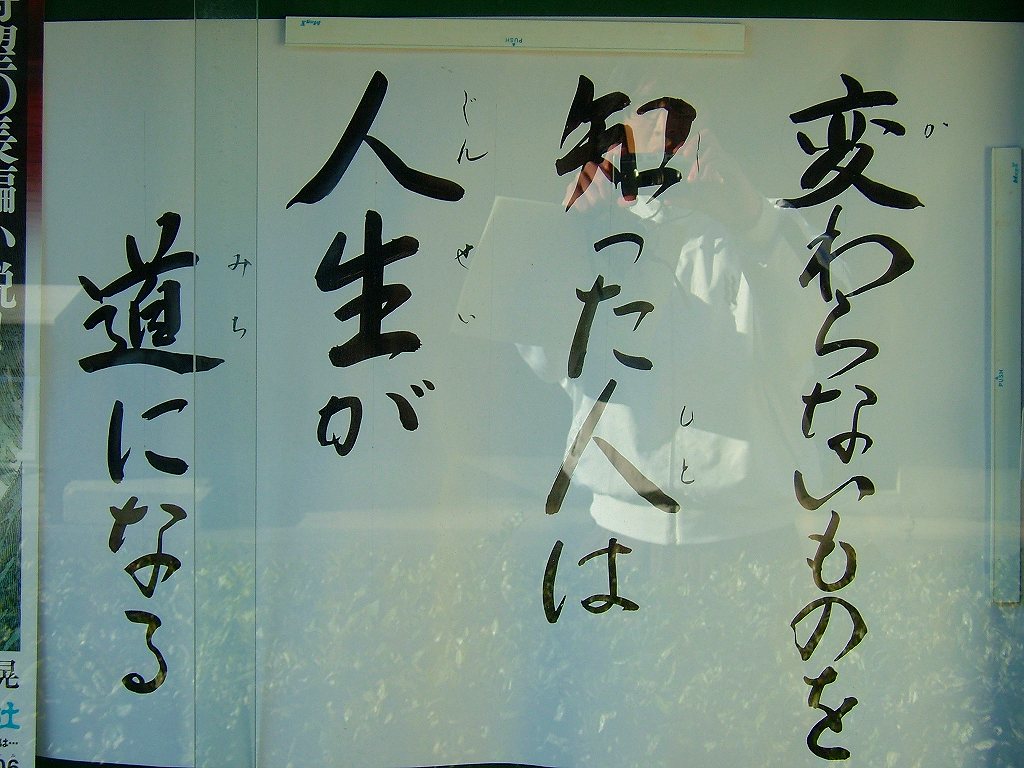 変わらないものを
か
知った人は
し
ひと
人生が
じんせい
道になる
みち
PUSH
MagX
PUSH
MagX